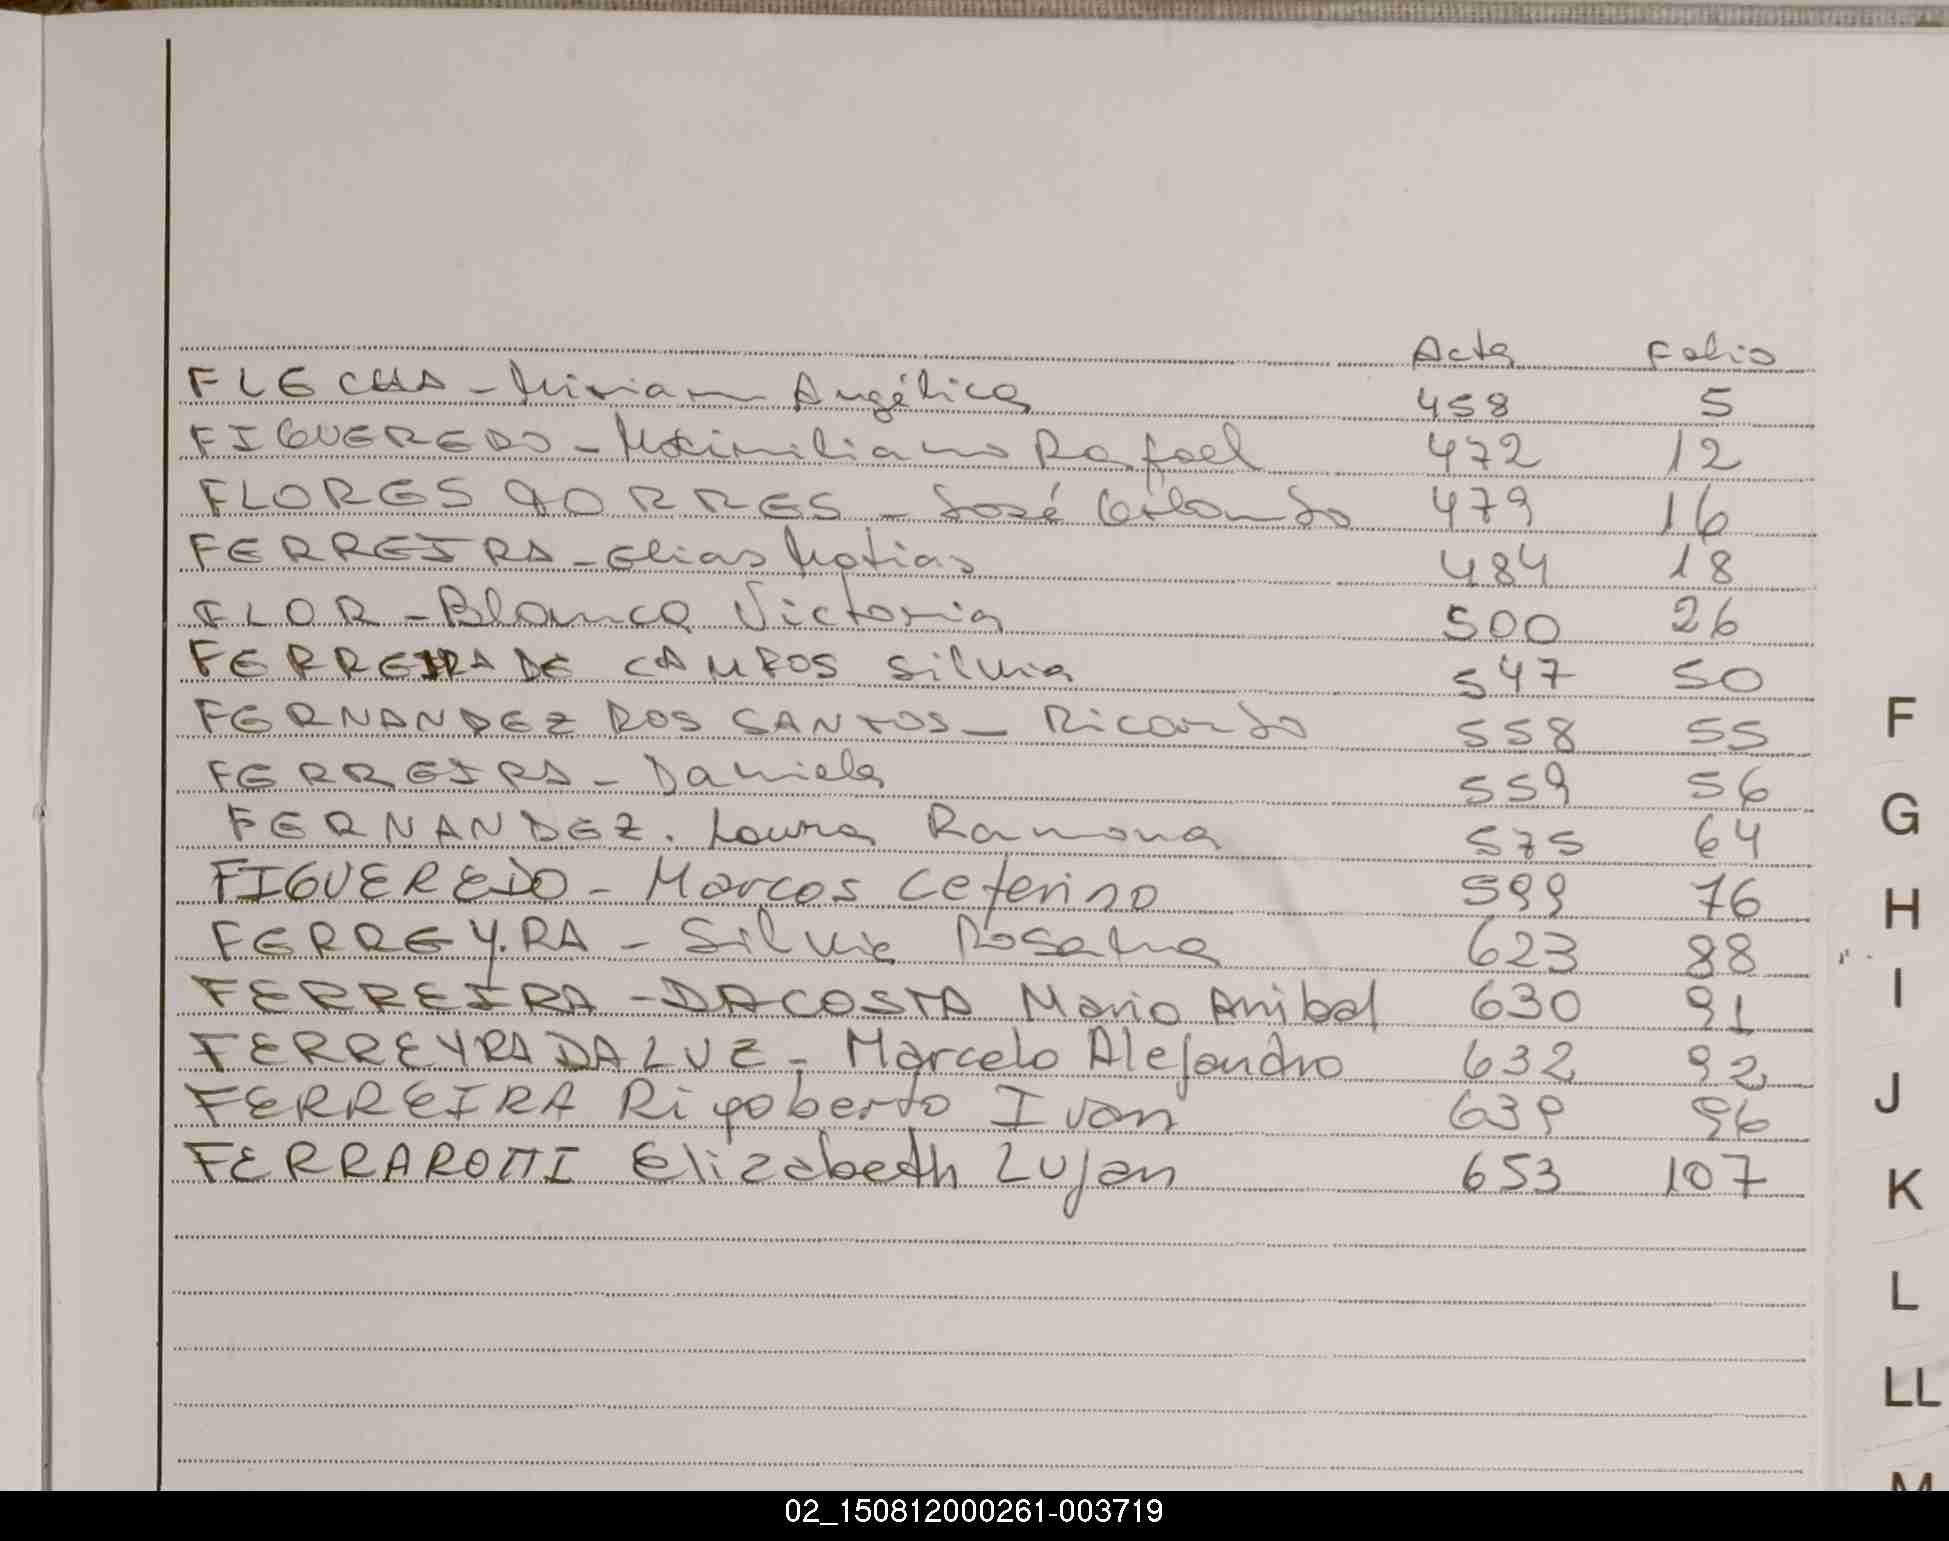 Acta Folio
FLECHA - Miriam Angélica 458 5
FIGUEREDO - Maximiliano Rafael 472 12
FLORES TORRES - José Orlando 479 16
FERREIRA - Elias Matias 484 18
FLOR - Blanca Victoria 500 26
FERREIRA DE CAMPOS Silvia 547 50
FERNANDEZ DOS SANTOS - Ricardo 558 55
FERREIRA - Daniela 559 56
FERNANDEZ. Laura Ramona 575 64
FIGUEREDO - Marcos Ceferino 599 76
FERREYRA - Silvia Rosana 623 88
FERREIRA - DACOSTA Mario Anibal 630 91
FERREYRA DA LUZ - Marcelo Alejandro 632 92
FERREIRA Rigoberto Ivan 639 96
FERRAROTTI Elizabeth Lujan 653 107
F
G
H
I
J
K
L
LL
M
02_150812000261-003719